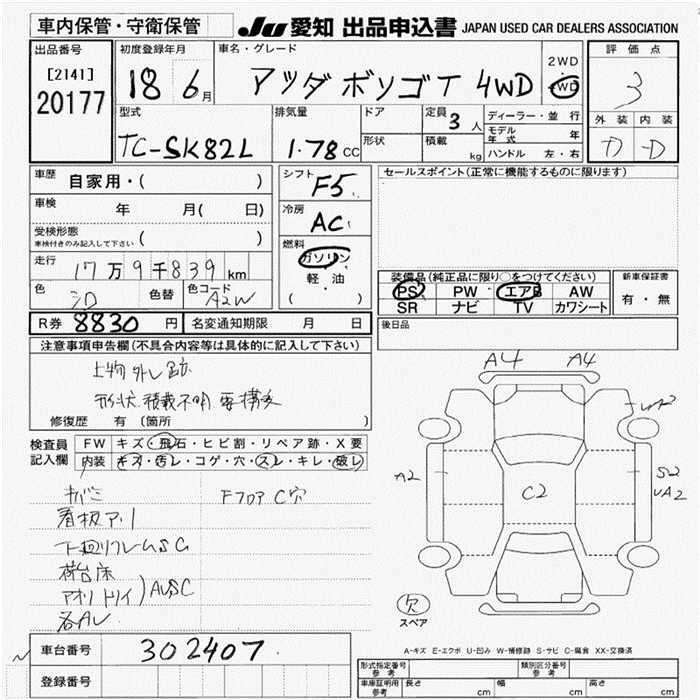 車内保管・守衛保管
JU 愛知 出品申込書 JAPAN USED CAR DEALERS ASSOCIATION
出品番号
[2141]
20177
初度登録年月
18 6月
車名・グレード
アツダ ボンゴT 4WD
2WD
4WD
評価点
3
外装 内装
D D
型式
TC-SK82L
排気量
1.78 CC
ドア
形状
定員 3 人
積載 kg
ディーラー・並行
モデル年式 年
ハンドル 左・右
車歴 自家用・( )
車検 年 月( 日)
受検形態
車検付きのみ記入して下さい ( )
走行 17万9千839km
色 シロ 色替 色コード A2W
シフト F5
冷房 AC
燃料
ガソリン
軽・油
( )
セールスポイント(正常に機能するものに限ります)
装備品(純正品に限り○をつけてください)
PS PW エアB AW
SR ナビ TV カワシート
新車保証書
有・無
後日品
R券 8830 円 名変通知期限 月 日
注意事項申告欄(不具合内容等は具体的に記入して下さい)
上物外し跡
形状、積載不明 要構変
修復歴 有 (箇所 )
検査員記入欄
FW キズ・飛石・ヒビ割・リペア跡・X要
内装 キズ・汚レ・コゲ・穴・スレ・キレ・破レ
キバミ FフロアC穴
看板アリ
下回りフレームSC
荷台床
アオリ トリイ )AUSC
各AU
A4 A4
UA2
A2
C2
S2
UA2
欠
スペア
A-キズ E-エクボ U-凹み W-補修跡 S-サビ C-腐食 XX-交換済
車台番号 302407
登録番号
形式指定番号 参考
類別区分番号 参考
車庫証明用 参考 長さ cm 幅 cm 高さ cm